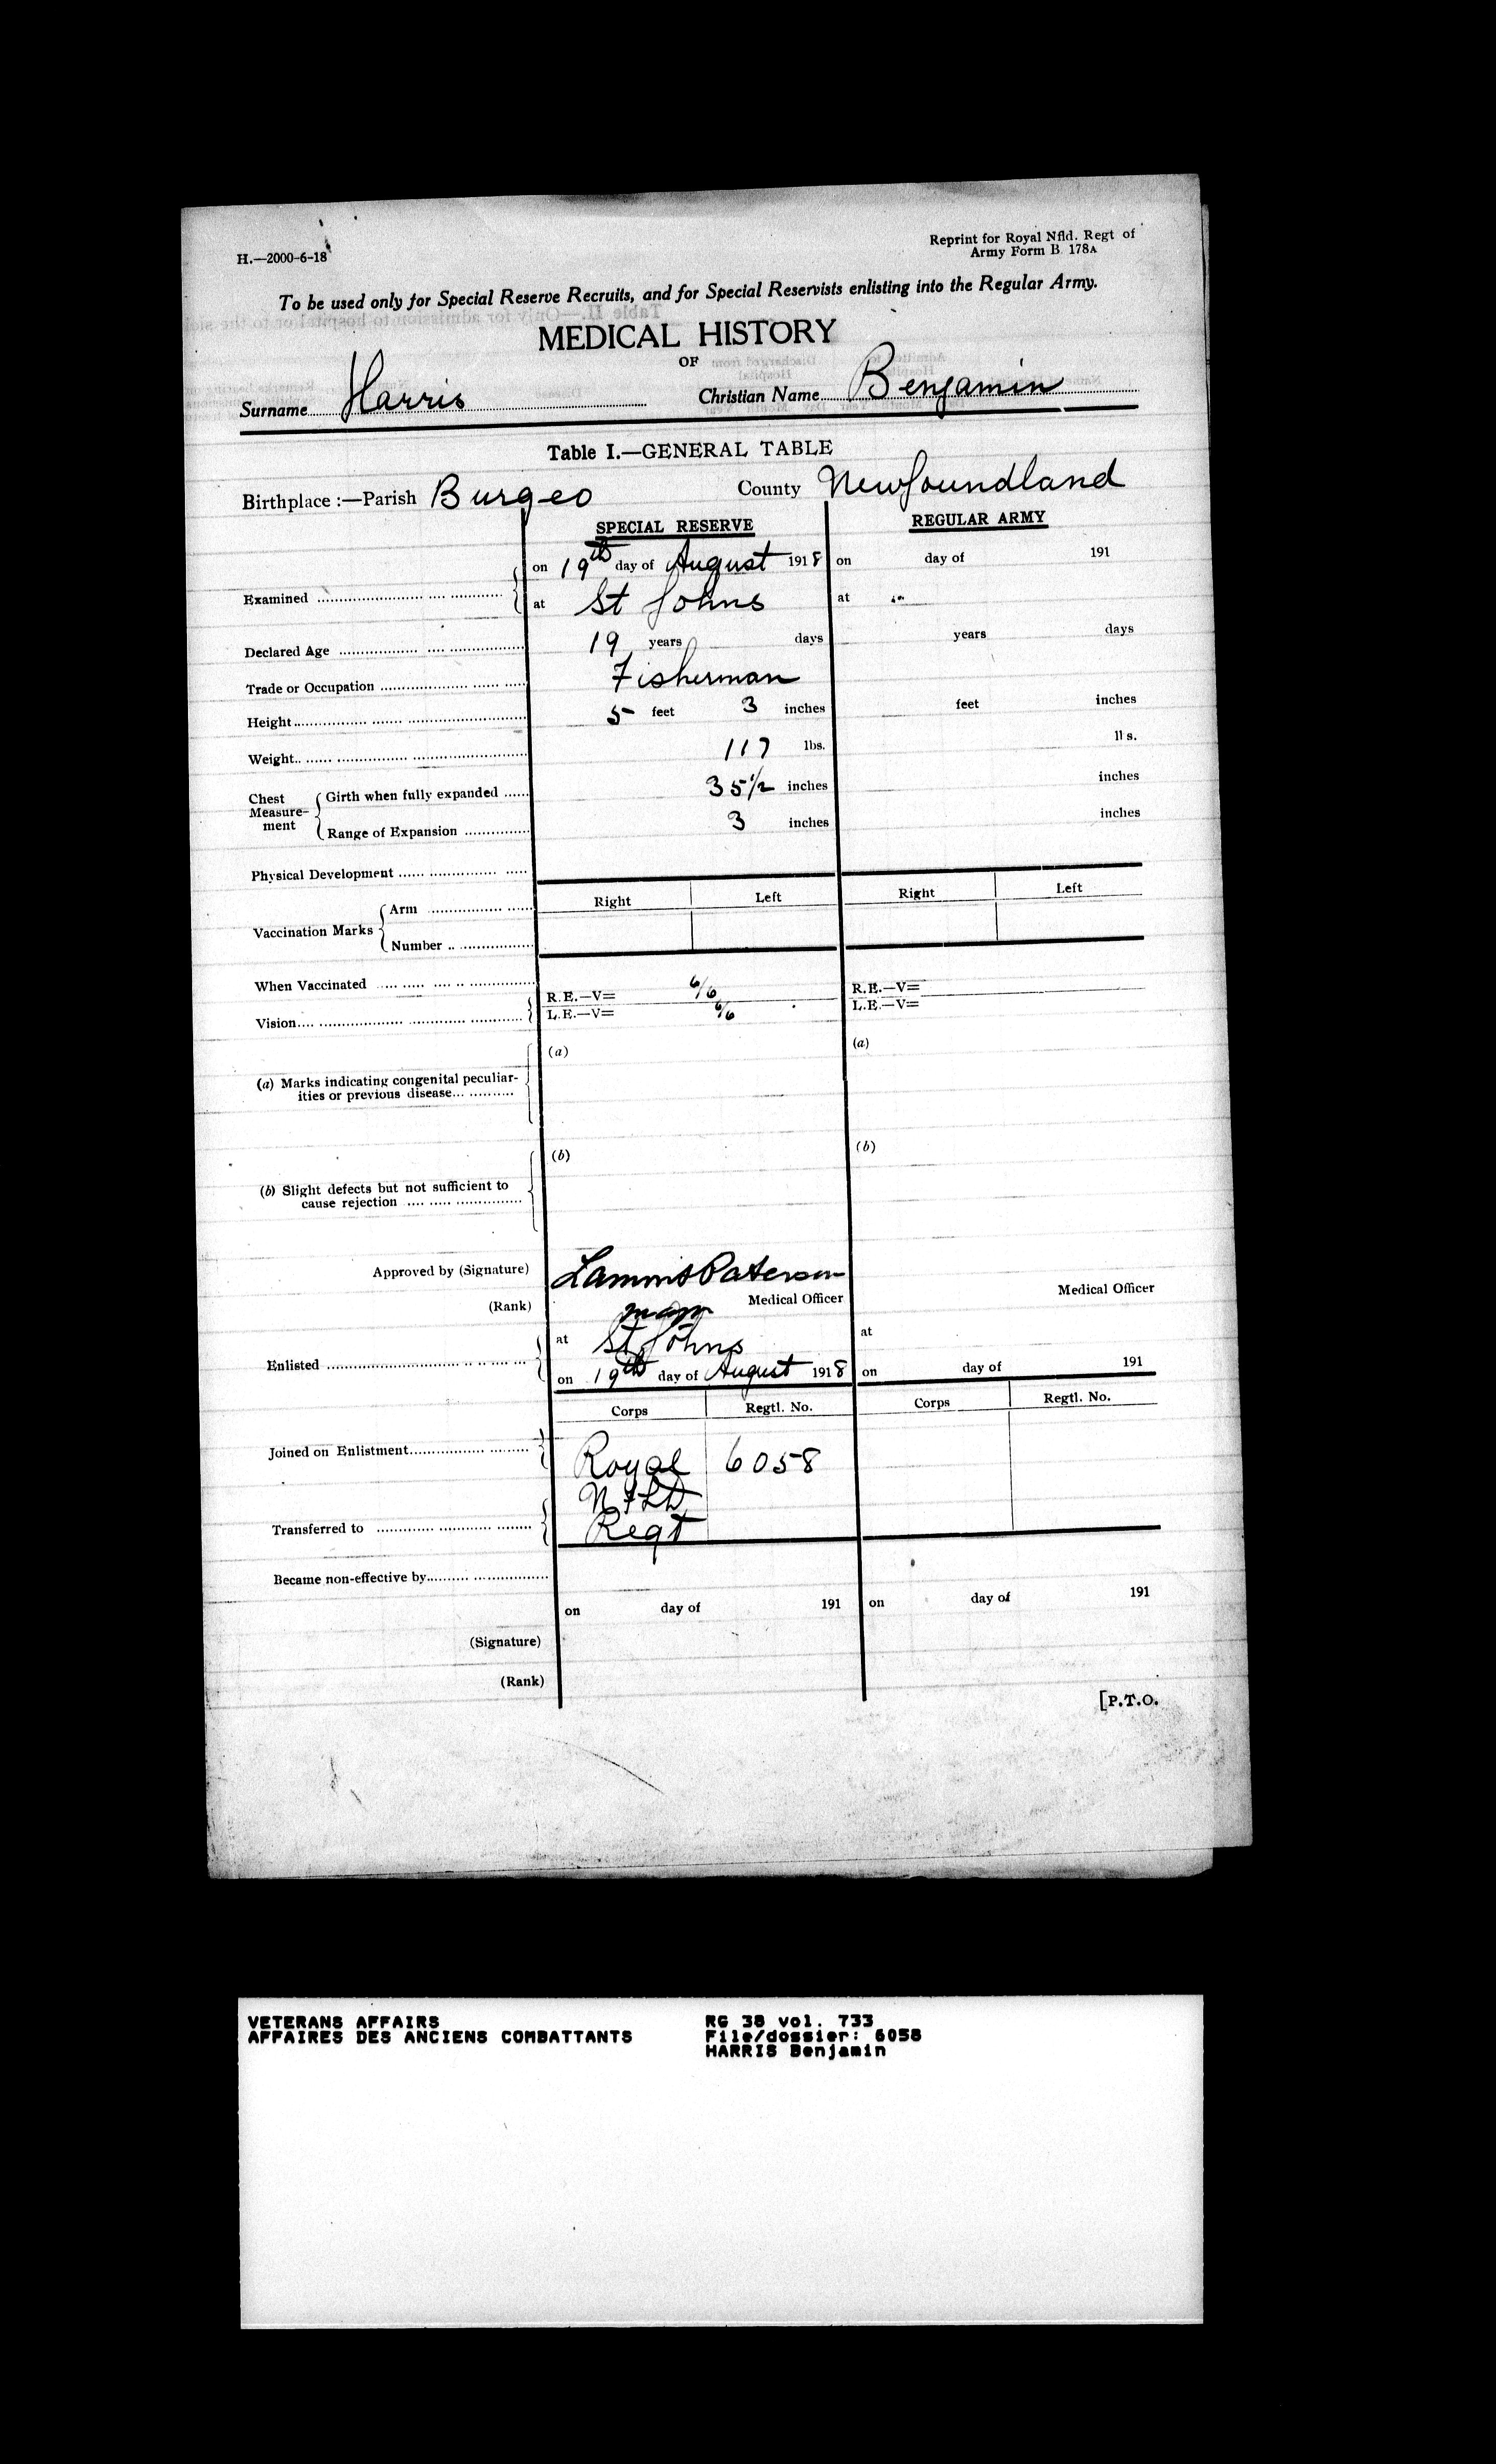 H.—2000-6-18
Reprint for Royal Nfld. Regt of
Army Form B 178A
To be used only for Special Reserve Recruits, and for Special Reservists enlisting into the Regular Army.
MEDICAL HISTORY
OF
Surname Harris Christian Name Benjamin
Table I.—GENERAL TABLE
Birthplace :—Parish Burgeo County Newfoundland
SPECIAL RESERVE REGULAR ARMY
on 19th day of August 1918 on day of 191
Examined at St Johns at
Declared Age 19 years days years days
Trade or Occupation Fisherman
Height 5 feet 3 inches feet inches
Weight 117 lbs. lbs.
Chest Measurement Girth when fully expanded 35 1/2 inches inches
Range of Expansion 3 inches inches
Physical Development
Right Left Right Left
Vaccination Marks Arm
Number
When Vaccinated
Vision R.E.—V= 6/6 R.E.—V=
L.E.—V= 6/6 L.E.—V=
(a) (a)
(a) Marks indicating congenital peculiar-
ities or previous disease
(b) (b)
(b) Slight defects but not sufficient to
cause rejection
Approved by (Signature) Paterson
(Rank) Medical Officer Medical Officer
at St Johns at
Enlisted on 19th day of August 1918 on day of 191
Corps Regtl. No. Corps Regtl. No.
Joined on Enlistment Royal 6058
Nfld
Transferred to Regt
Became non-effective by
on day of 191 on day of 191
(Signature)
(Rank)
[P.T.O.
VETERANS AFFAIRS RG 38 vol. 733
AFFAIRES DES ANCIENS COMBATTANTS File/dossier: 6058
HARRIS Benjamin